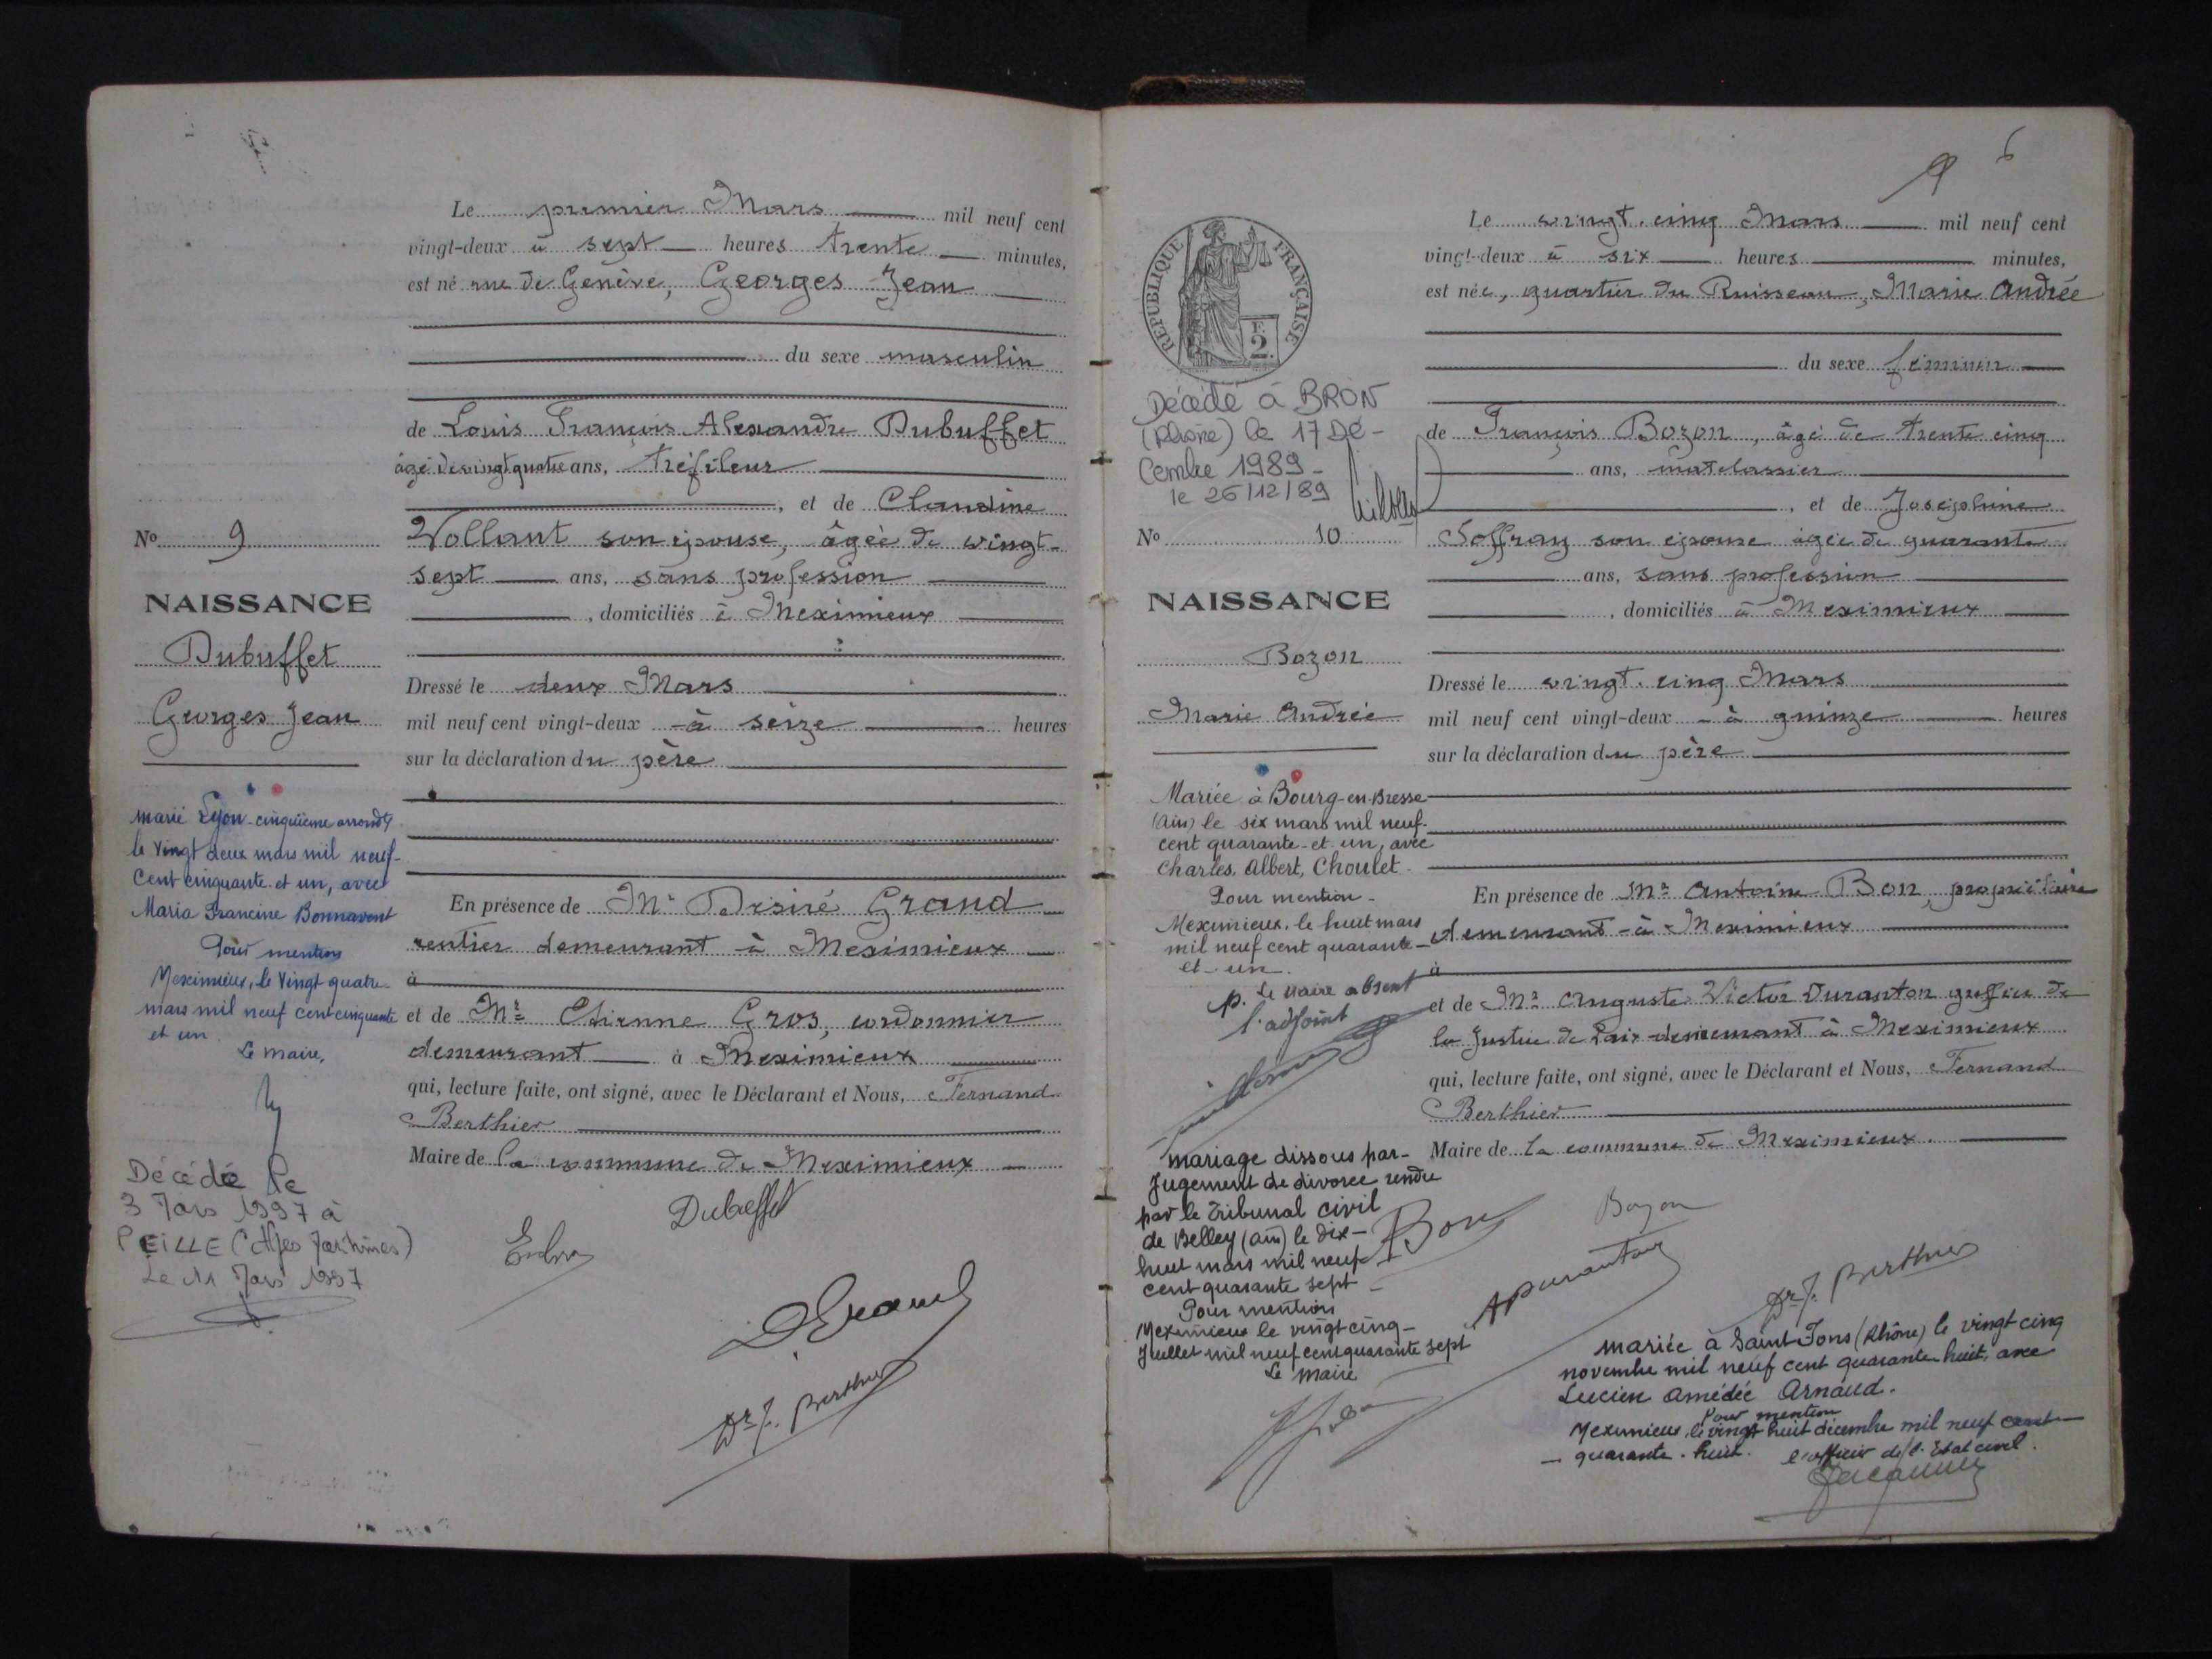 Le premier Mars mil neuf cent
vingt-deux à sept heures trente minutes,
est né rue de Genève, Georges Jean
du sexe masculin
de Louis François Alexandre Dubuffet
âgé de vingt quatre ans, tréfileur
, et de Claudine
Vollant son épouse, âgée de vingt-
sept ans, sans profession
, domiciliés à Meximieux
Dressé le deux Mars
mil neuf cent vingt-deux à seize heures
sur la déclaration du père
En présence de Mr Désiré Grand
rentier demeurant à Meximieux
à
et de Mr Etienne Gros, cordonnier
demeurant à Meximieux
qui, lecture faite, ont signé, avec le Déclarant et Nous, Fernand
Berthier
Maire de la commune de Meximieux
Dubuffet
D. Grand
Dr F. Berthier
No 9
NAISSANCE
Dubuffet
Georges Jean
marié Lyon-cinquième arrondt
le vingt deux mars mil neuf-
cent cinquante et un, avec
Maria Francine Bonnavent
Pour mention
Meximieux, le vingt quatre
mars mil neuf cent cinquante
et un
Le maire,
Décédé le
3 Mars 1997 à
PEILLE (Alpes Maritimes)
Le 11 Mars 1997
6
RÉPUBLIQUE FRANÇAISE
F.
2.
Décédé à BRON
(Rhône) le 17 Dé-
cembre 1989-
le 26/12/89
No 10
NAISSANCE
Bozon
Marie Andrée
Mariée à Bourg-en-Bresse
(Ain) le six mars mil neuf-
cent quarante-et-un, avec
Charles, Albert, Choulet.
Pour mention-
Meximieux, le huit mars
mil neuf cent quarante-
et-un.
p. Le Maire absent
l'adjoint
mariage dissous par-
Jugement de divorce rendu
par le Tribunal civil
de Belley (Ain) le dix-
huit mars mil neuf
cent quarante sept-
Pour mention
Meximieux le vingt cinq-
Juillet mil neuf cent quarante sept
Le Maire
Le vingt-cinq Mars mil neuf cent
vingt-deux à six heures minutes,
est née, quartier du Ruisseau, Marie Andrée
du sexe féminin
de François Bozon, âgé de trente cinq
ans, matelassier
, et de Joséphine
Soffray son épouse âgée de quarante
ans, sans profession
, domiciliés à Meximieux
Dressé le vingt-cinq Mars
mil neuf cent vingt-deux à quinze heures
sur la déclaration du père
En présence de Mr Antoine Bon, propriétaire
demeurant à Meximieux
à
et de Mr Auguste Victor Duranton greffier de
la Justice de Paix demeurant à Meximieux
qui, lecture faite, ont signé, avec le Déclarant et Nous, Fernand
Berthier
Maire de la commune de Meximieux.
Bon
Bozon
A Duranton
Dr F. Berthier
mariée à Saint-Fons (Rhône) le vingt cinq
novembre mil neuf cent quarante huit, avec
Lucien Amédée Arnaud.
Pour mention
Meximieux, le vingt huit décembre mil neuf cent-
- quarante-huit. l'officier de l'Etat civil.